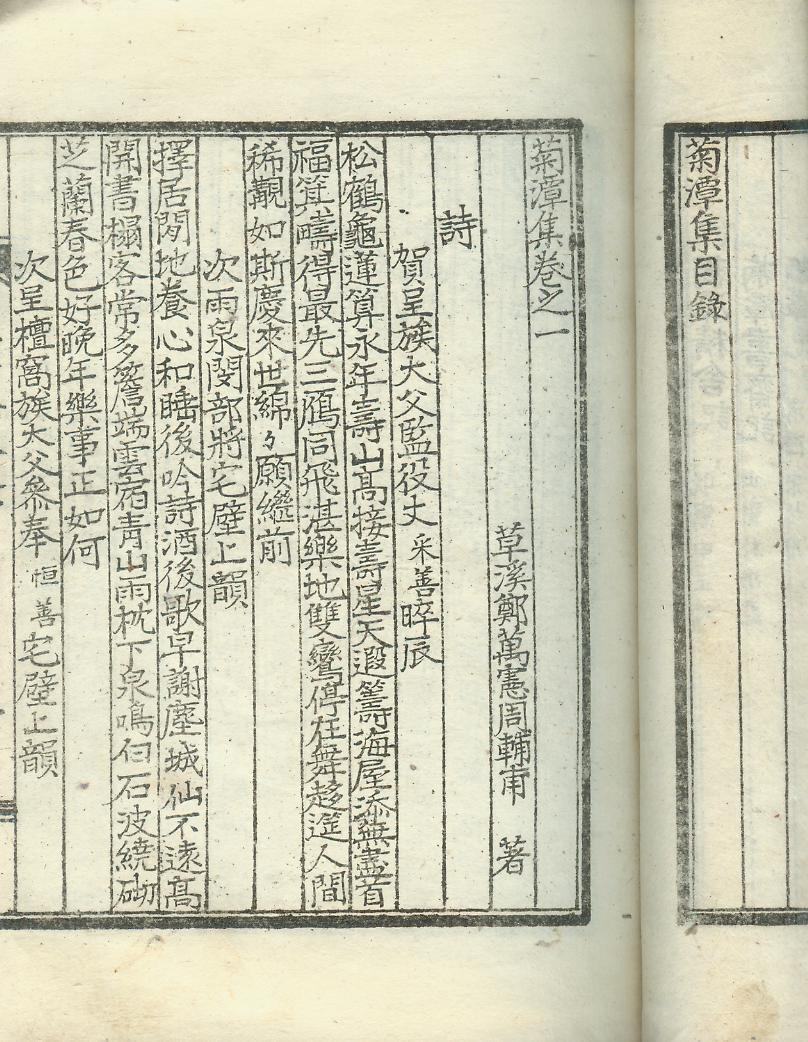 菊潭集目錄
菊潭集卷之一
草溪鄭萬憲周輔甫 著
詩
賀呈族大父監役丈采善晬辰
松鶴龜蓮算永年壽山高接壽星天遐籌海屋添無盡首
福箕疇得最先三鴈同飛湛樂地雙鸞停在舞趍筵人間
稀覯如斯慶來世綿々願繼前
次雨泉閔部將宅壁上韻
擇居閒地養心和睡後吟詩酒後歌早謝塵城仙不遠高
開書榻客常多簷端雲宿靑山雨枕下泉鳴白石波繞砌
芝蘭春色好晩年樂事正如何
次呈檀窩族大父叅奉恒善宅壁上韻